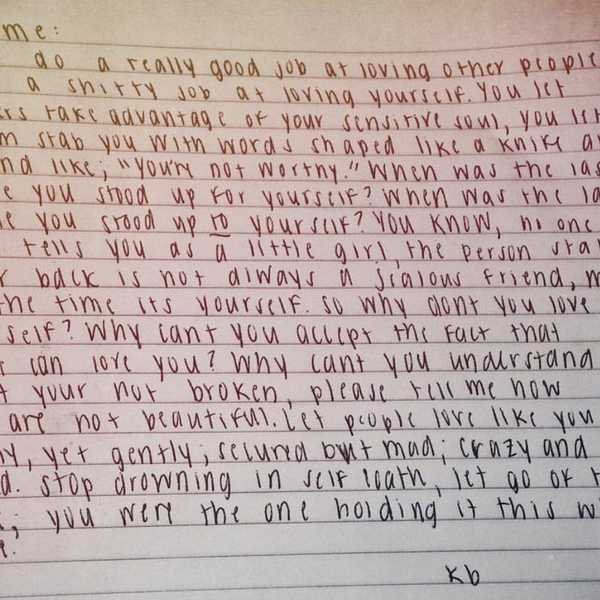 me:
do a really good job at loving other people
a shitty job at loving yourself. You let
rs take advantage of your sensitive soul, you let
m stab you with words shaped like a knife a
nd like; "you're not worthy." When was the las
e you stood up for yourself? When was the la
e you stood up to yourself? You know, no one
tells you as a little girl, the person sta
r back is not always a jealous friend, m
the time its yourself. so why dont you love
self? Why cant you accept the fact that
can love you? Why cant you understand
t your not broken, please tell me how
are not beautiful. Let people love like you
ly, yet gently; secured but mad; crazy and
d. stop drowning in self loath, let go of
; you were the one holding it this w
e.
kb